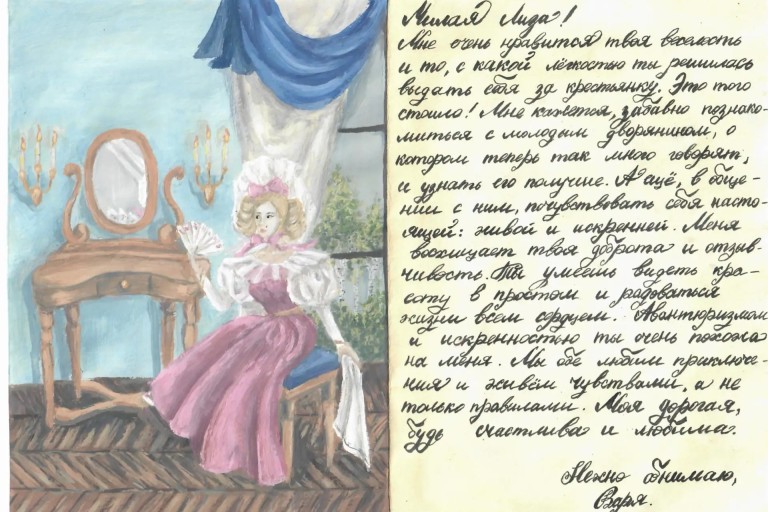 Милая Лиза!
Мне очень нравится твоя веселость
и то, с какой лёгкостью ты решилась
выдать себя за крестьянку. Это того
стоило! Мне кажется, забавно познако-
миться с молодым дворянином, о
котором теперь так много говорят,
и узнать его получше. А ещё, в обще-
нии с ним, почувствовать себя насто-
ящей: живой и искренней. Меня
восхищает твоя доброта и отзыв-
чивость. Ты умеешь видеть кра-
соту в простом и радоваться
жизни всем сердцем. Авантюризмом
и искренностью ты очень похожа
на меня. Мы обе любим приключе-
ния и живём чувствами, а не
только правилами. Моя дорогая,
будь счастлива и любима.
Нежно обнимаю,
Варя.